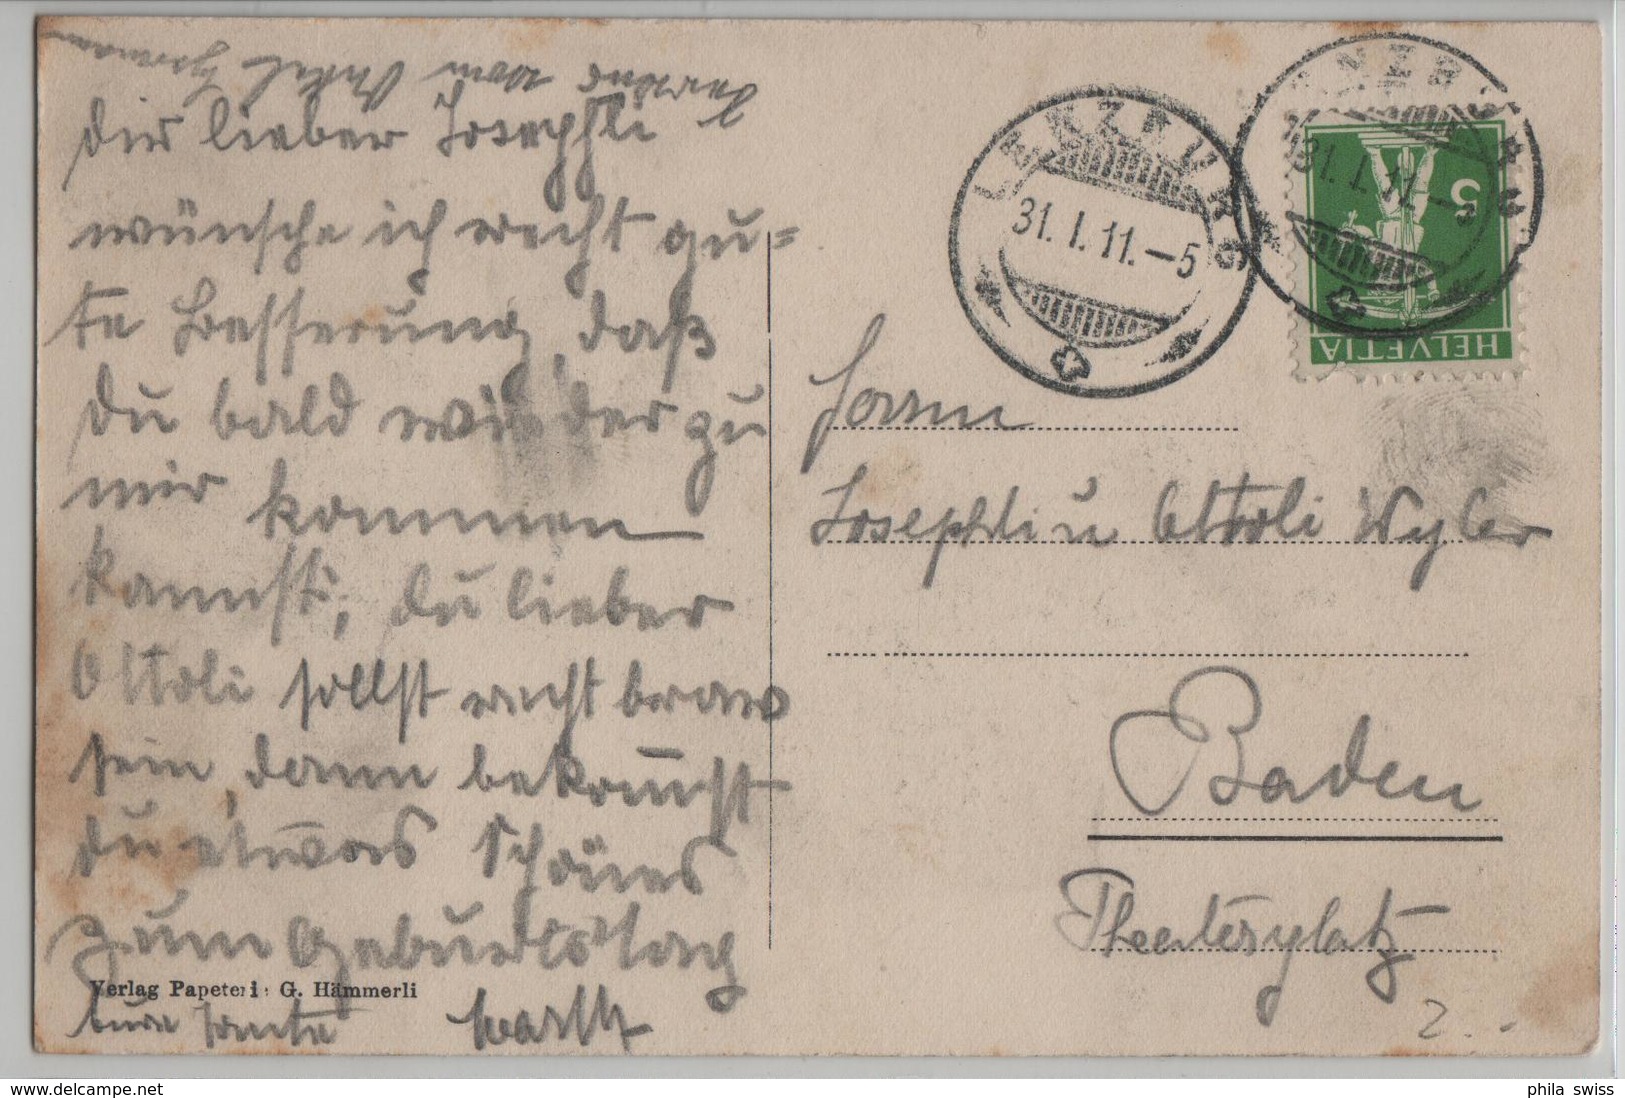 dir lieber Josephli
wünsche ich recht gu=
te Besserung, daß
du bald wieder zu
mir kommen
kannst, du lieber
Ottoli sollst recht brav
sein, dann bekom̄st
du etwas Schönes
zum Geburtstag
Verlag Papeteri: G. Hämmerli
LENZBURG
31. I. 11. — 5
LENZBURG
31. I. 11. —
5
HELVETIA
Herrn
Josephli u Ottoli Wyler
Baden
Theaterplatz
2.-
phila swiss